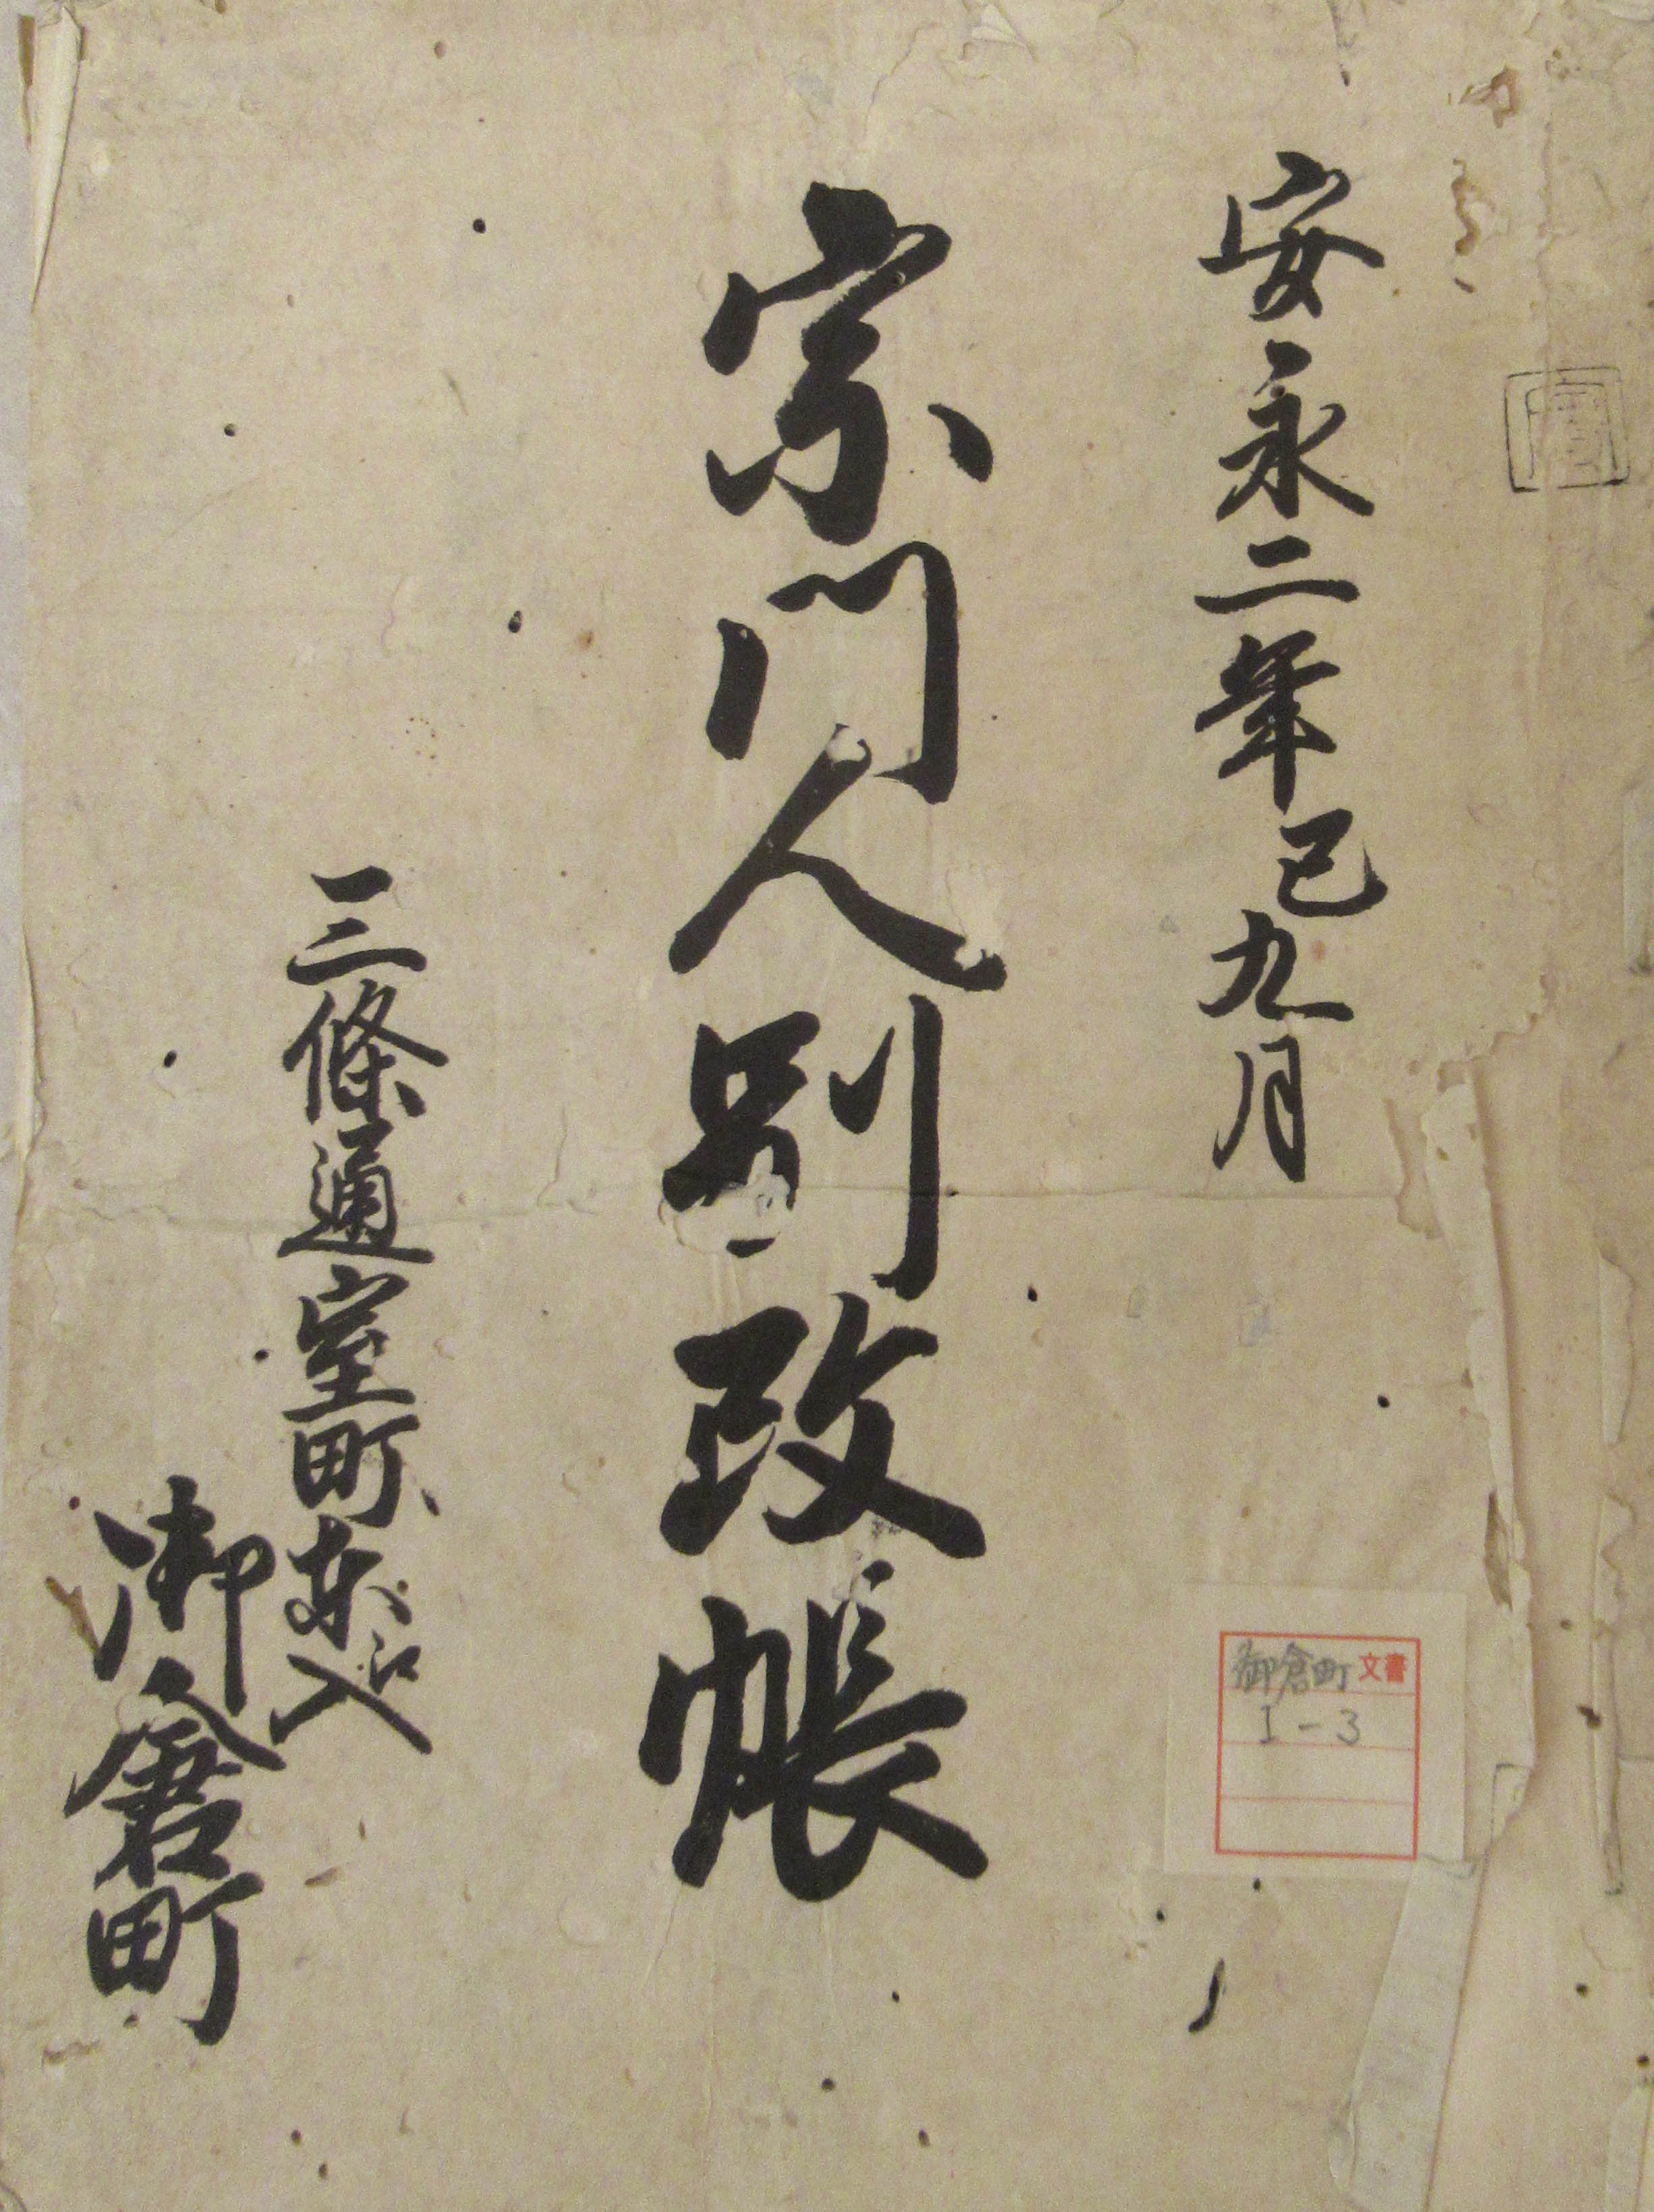 安永二年巳九月
宗門人別改帳
三條通室町東江入
御倉町
御倉町文書
I-3